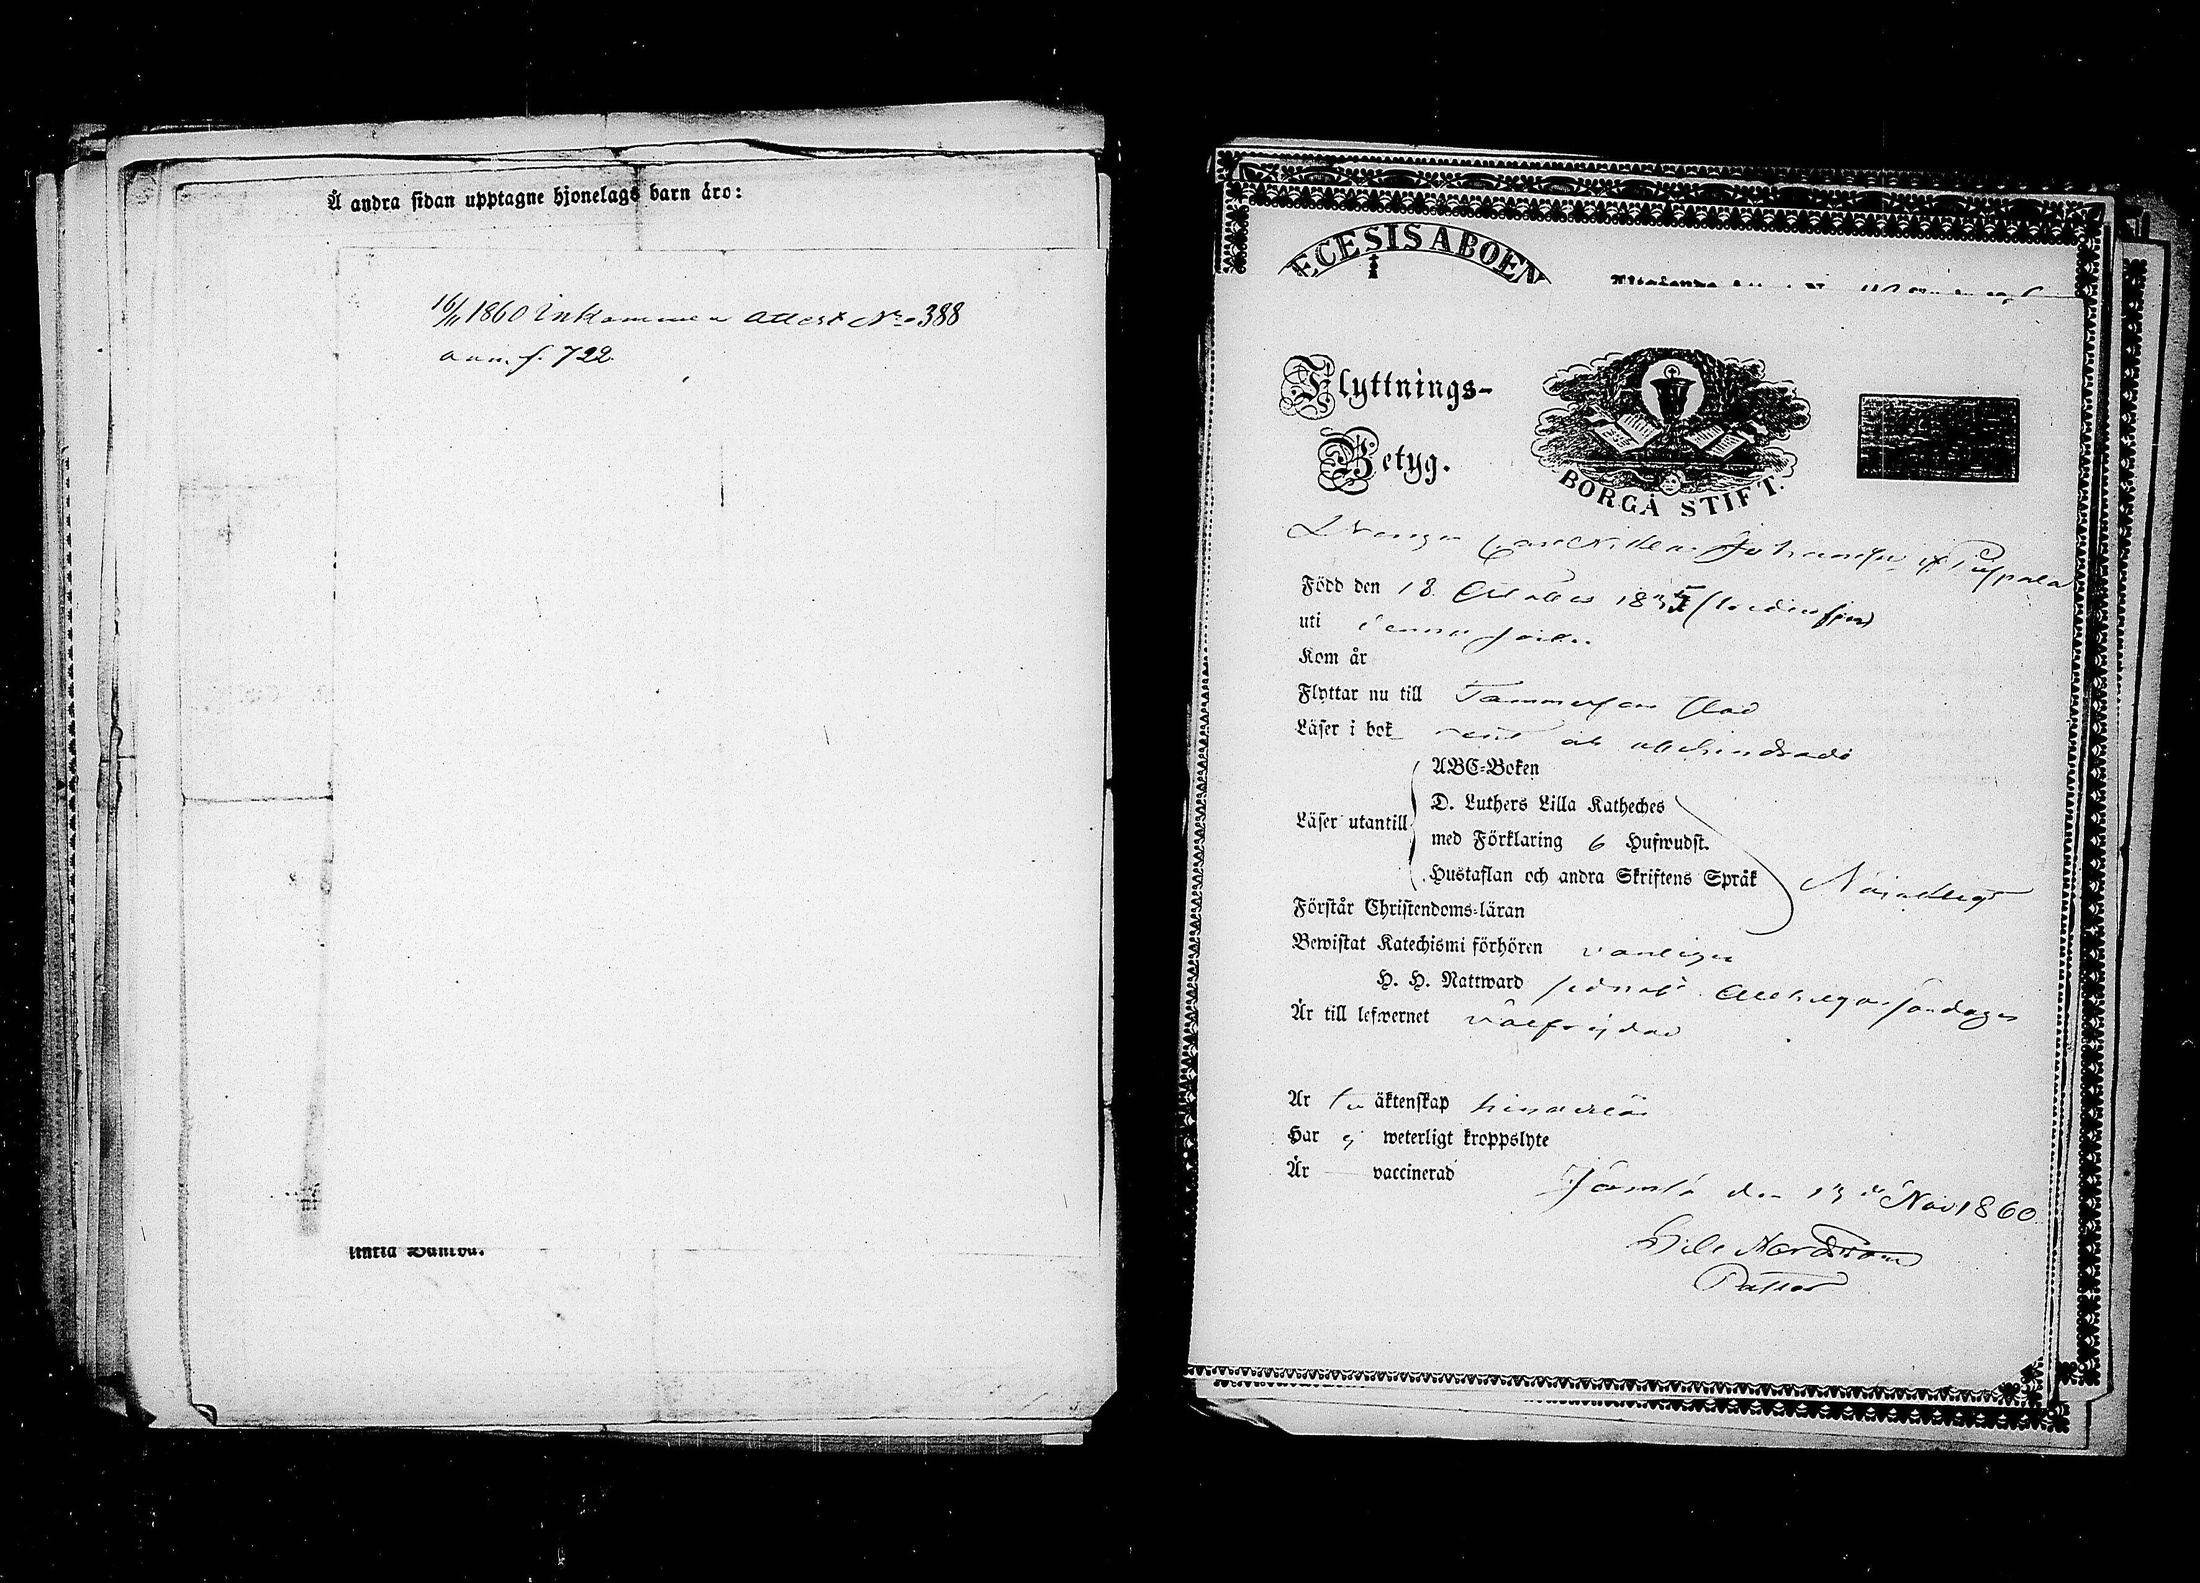 Å andra sidan upptagne hjonelags barn äro:
16/11 1860 Inkommen attest No 388
anm. f. 722.
ECESIS ABOEN
Flyttnings-
Betyg.
BORGÅ STIFT.
Drängen Johansson
Född den 18 October 1835
uti denna socken
Kom år
Flyttar nu till Tammerfors stad
Läser i bok rent och obehindradt
ABC-Boken
D. Luthers Lilla Katheches
Läser utantill
med Förklaring 6 Hufwudst.
Hustaflan och andra Skriftens Språk
Nöjaktigt
Förstår Christendoms-läran
Bewistat Katechismi förhören vanligen
H. H. Nattward sednast Allhelgona söndagen
Är till lefwernet välfrejdad
Är till äktenskap hinderlös
Har ej weterligt kroppslyte
Är — vaccinerad
Jämsä den 13 de Nov 1860.
Nordström
Pastor